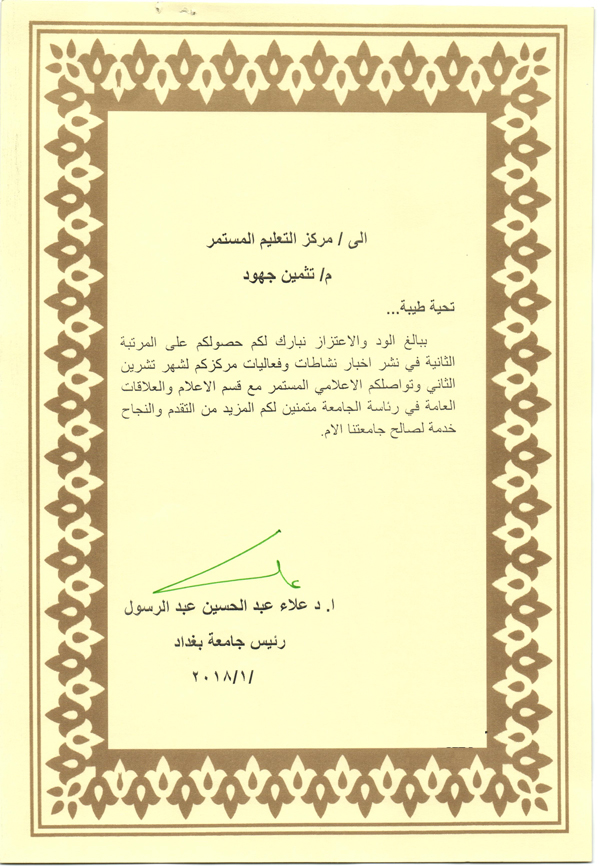 الى / مركز التعليم المستمر
م/ تثمين جهود
تحية طيبة...
ببالغ الود والاعتزاز نبارك لكم حصولكم على المرتبة
الثانية في نشر اخبار نشاطات وفعاليات مركزكم لشهر تشرين
الثاني وتواصلكم الاعلامي المستمر مع قسم الاعلام والعلاقات
العامة في رئاسة الجامعة متمنين لكم المزيد من التقدم والنجاح
خدمة لصالح جامعتنا الام.
ا. د علاء عبد الحسين عبد الرسول
رئيس جامعة بغداد
/٢٠١٨/١